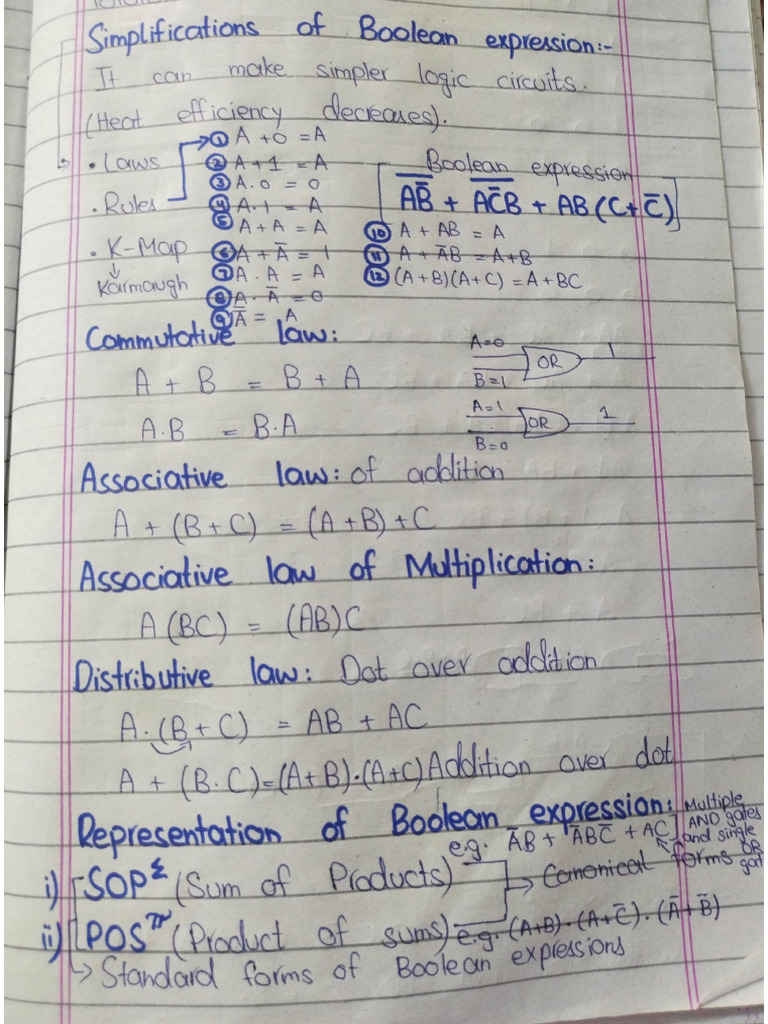 Simplifications of Boolean expression:-
It can make simpler logic circuits.
(Heat efficiency decreases).
• Laws
• Rules
• K-Map
↓
Karmaugh
① A + 0 = A
② A + 1 = A
③ A. 0 = 0
④ A. 1 = A
⑤ A + A = A
⑥ A + A̅ = 1
⑦ A . A = A
⑧ A. A̅ = 0
⑨ A̿ = A
Boolean expression
[ \overline{AB̅} + \overline{AC̅B} + AB (C + C̅) ]
⑩ A + AB = A
⑪ A + A̅B = A+B
⑫ (A+B)(A+C) = A + BC
Commutative law:
A + B = B + A
A.B = B.A
A=0
B=1
OR
1
A=1
B=0
OR
1
Associative law: of addition
A + (B + C) = (A + B) + C
Associative law of Multiplication:
A (BC) = (AB)C
Distributive law: Dot over addition
A. (B + C) = AB + AC
A + (B. C) = (A+B).(A+C) Addition over dot
Representation of Boolean expression:
i) SOP Σ (Sum of Products) e.g. A̅B + A̅BC̅ + AC
Multiple
AND gates
and single
OR
gat
→ Canonical forms
ii) POS π (Product of sums) e.g. (A+B) . (A+C̅) . (A̅+B̅)
↳ Standard forms of Boolean expressions